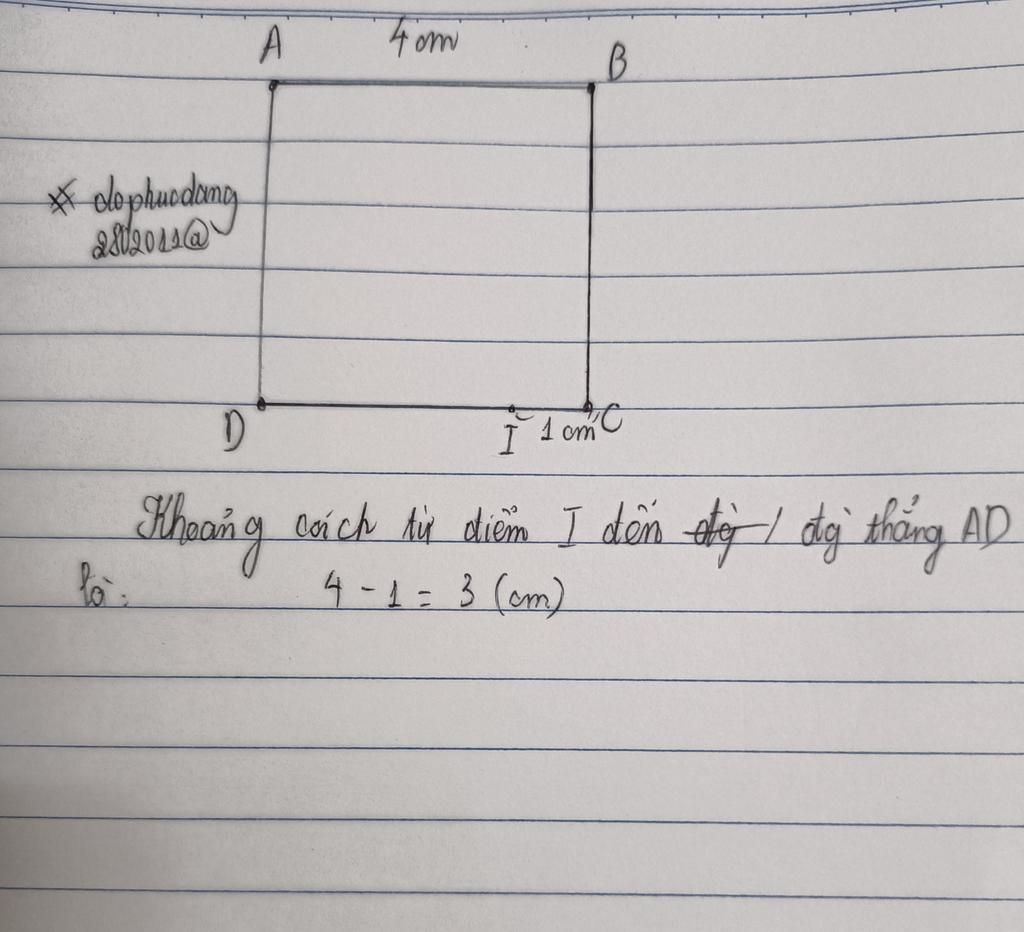 A 4 cm B
* dophucdang
2802011@
D I 1 cm C
Khoảng cách từ điểm I đến đg thẳng AD
là:
4 - 1 = 3 (cm)